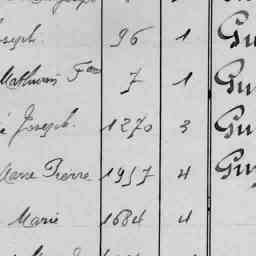 Joseph 96 1 Gu
Mathurin Fois 7 1 Gu
é Joseph 1270 3 Gu
Marie Pierre 1957 4 Gu
Marie 1684 4